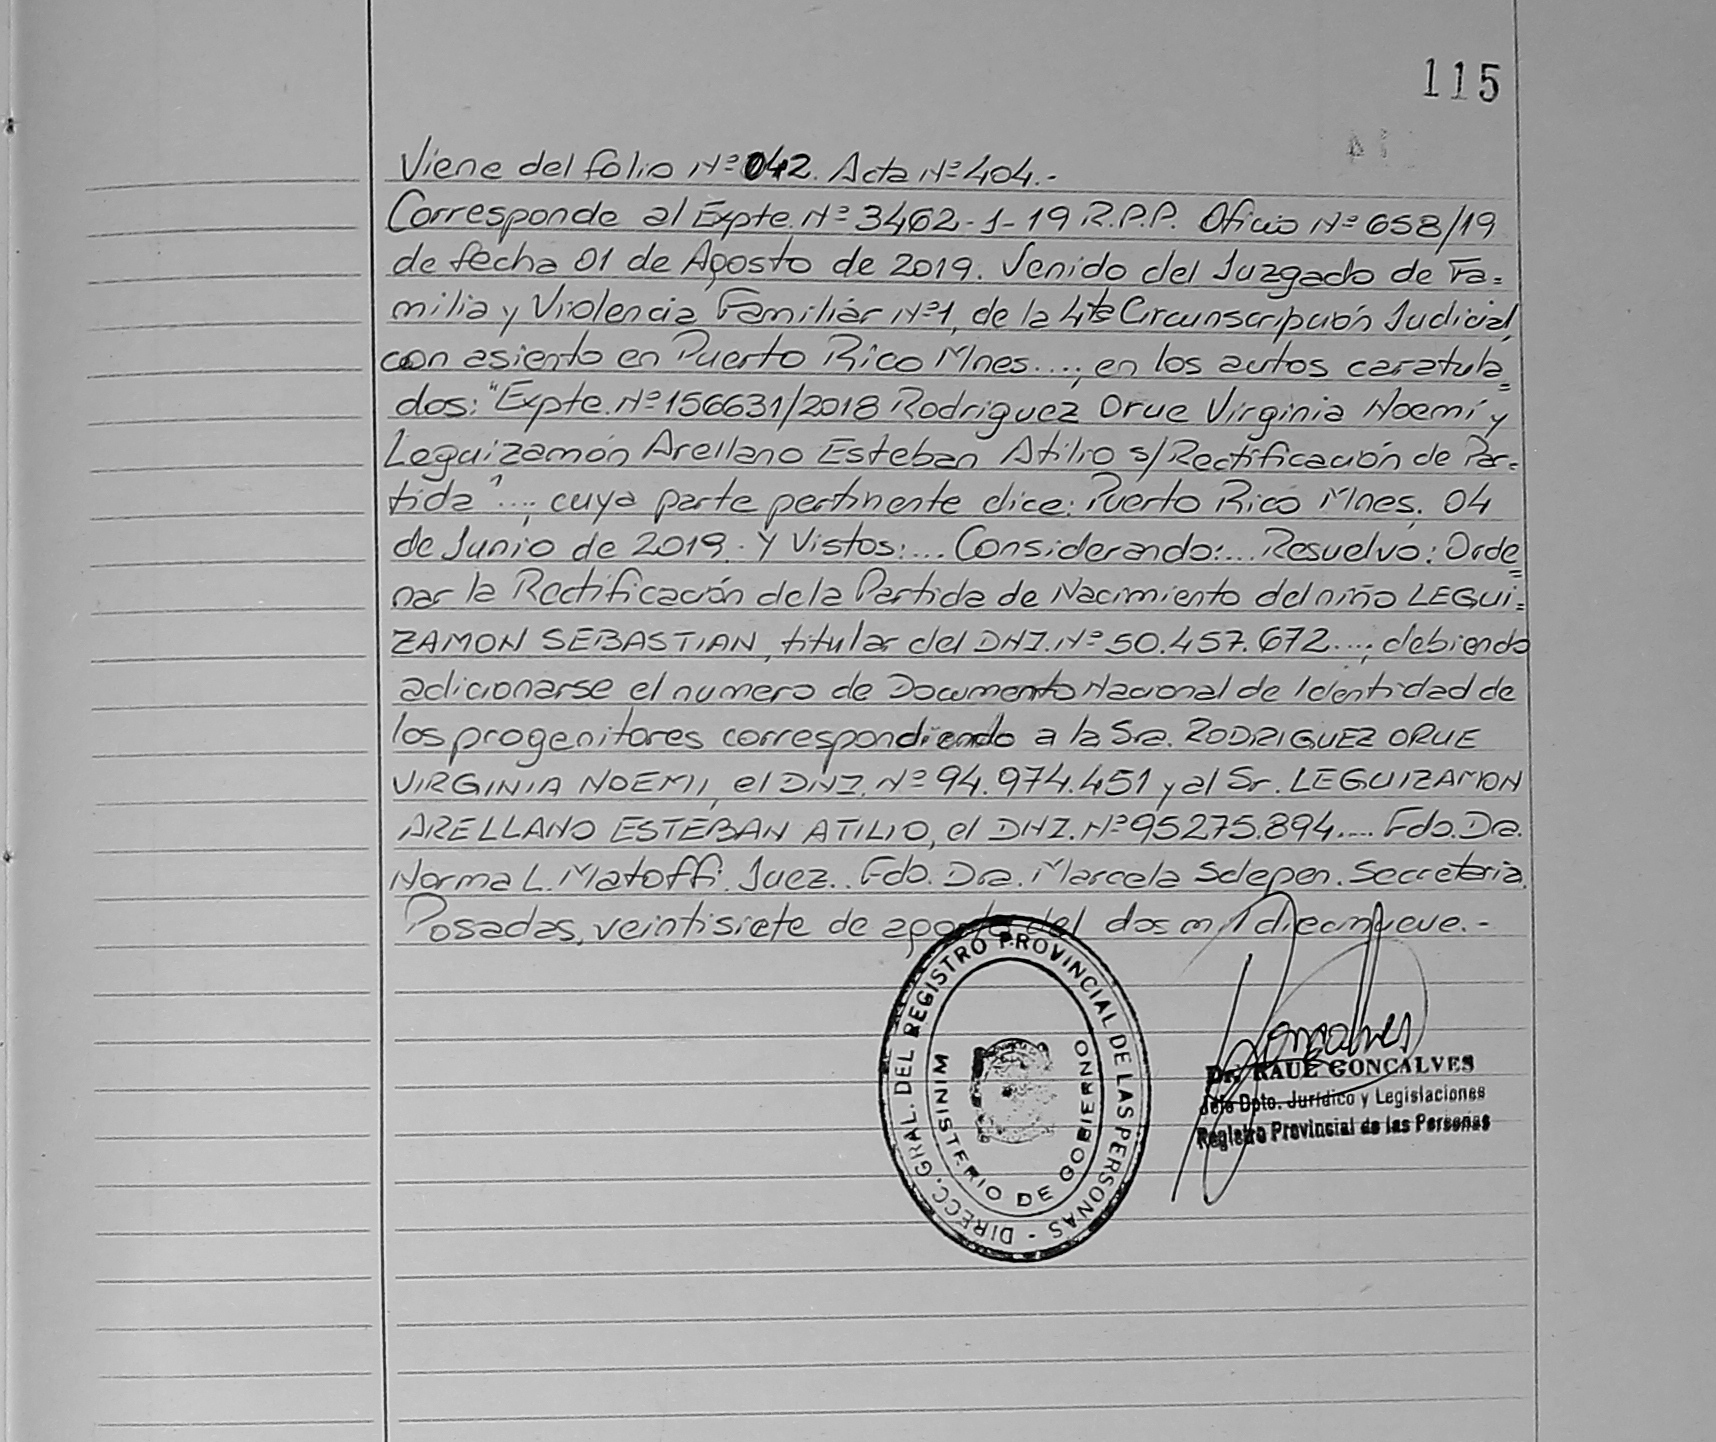 115
Viene del folio Nº 042. Acta Nº 404.-
Corresponde al Expte. Nº 3462-1-19 R.P.P. Oficio Nº 658/19
de fecha 01 de Agosto de 2019. Venido del Juzgado de Fa=
milia y Violencia Familiar Nº1, de la 4ta Circunscripción Judicial,
con asiento en Puerto Rico Mnes...., en los autos caratula=
dos: "Expte. Nº 156631/2018 Rodriguez Orue Virginia Noemí y
Leguizamón Arellano Esteban Atilio s/Rectificación de Par=
tida"...; cuya parte pertinente dice: Puerto Rico Mnes, 04
de Junio de 2019. Y Vistos:... Considerando:... Resuelvo: Orde=
nar la Rectificación de la Partida de Nacimiento del niño LEGUI=
ZAMON SEBASTIAN, titular del DNI. Nº 50.457.672...; debiendo
adicionarse el numero de Documento Nacional de Identidad de
los progenitores correspondiendo a la Sra. RODRIGUEZ ORUE
VIRGINIA NOEMI, el DNI. Nº 94.974.451 y al Sr. LEGUIZAMON
ARELLANO ESTEBAN ATILIO, el DNI. Nº 95275.894.... Fdo. Dra.
Norma L. Matoffi. Juez.. Fdo. Dra. Marcela Selepen. Secretaria.
Posadas, veintisiete de agosto del dos mil diecinueve.-
DIRECC. GRAL. DEL REGISTRO PROVINCIAL DE LAS PERSONAS -
MINISTERIO DE GOBIERNO
Gonçalves
Dr. RAUL GONCALVES
Jefe Dpto. Jurídico y Legislaciones
Registro Provincial de las Personas